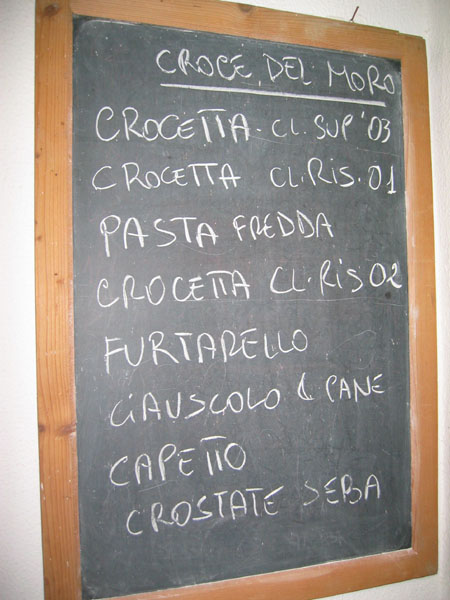 CROCE DEL MORO
CROCETTA CL. SUP '03
CROCETTA CL. RIS. 01
PASTA FREDDA
CROCETTA CL. RIS 02
FURTARELLO
CIAUSCOLO & PANE
CAPETTO
CROSTATE SEBA